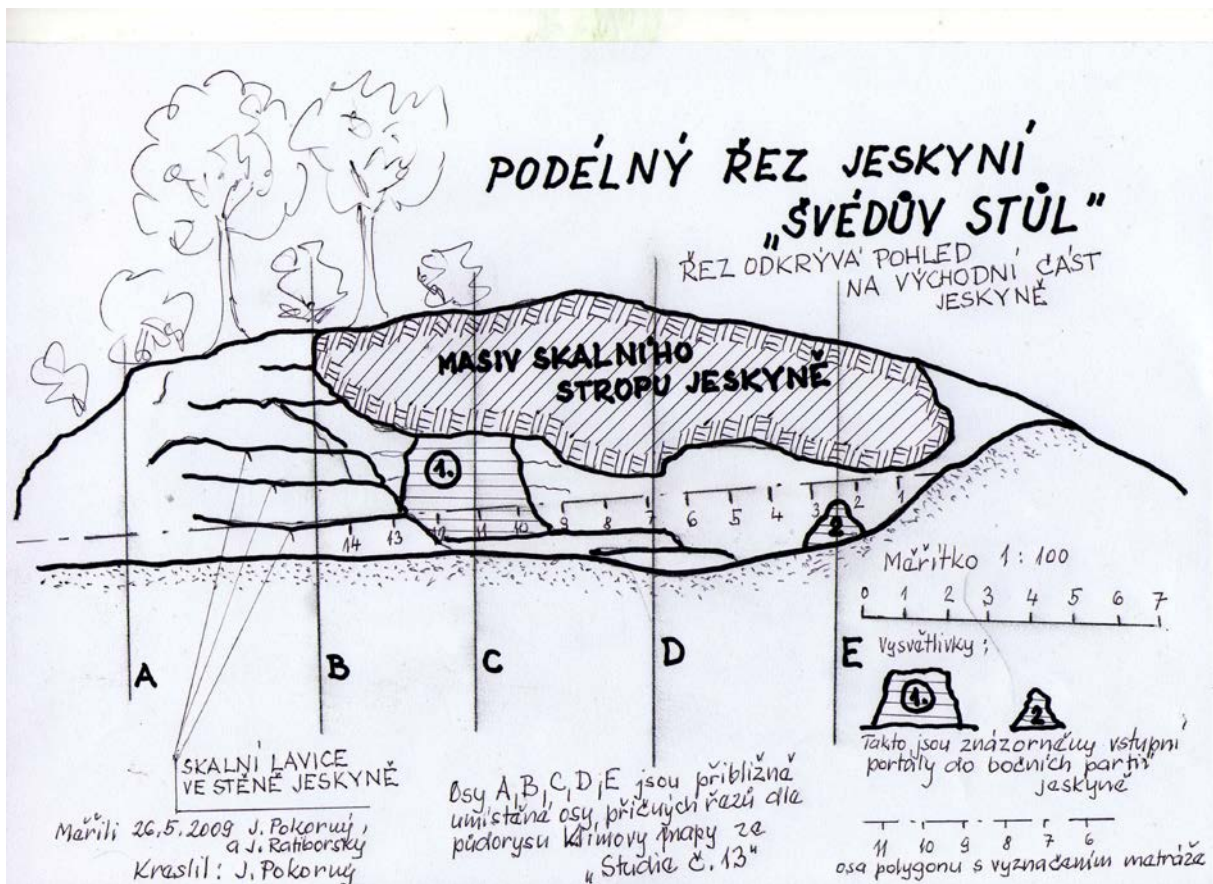 PODÉLNÝ ŘEZ JESKYNÍ
„ŠVÉDŮV STŮL"
ŘEZ ODKRÝVÁ POHLED
NA VÝCHODNÍ ČÁST
JESKYNĚ
MASIV SKALNÍHO
STROPU JESKYNĚ
1.
14 13 12 11 10 9 8 7 6 5 4 3 2 1
2
Měřítko 1:100
0 1 2 3 4 5 6 7
A B C D E
Vysvětlivky:
1. 2
Takto jsou znázorněny vstupní
portály do bočních partií
jeskyně
11 10 9 8 7 6
osa polygonu s vyznačením metráže
SKALNÍ LAVICE
VE STĚNĚ JESKYNĚ
Měřili 26.5.2009 J. Pokorný,
a J. Ratiborský
Kreslil: J. Pokorný
Osy A,B,C,D,E jsou přibližně
umístěné osy příčných řezů dle
půdorysu Klímovy mapy ze
„Studie č. 13"